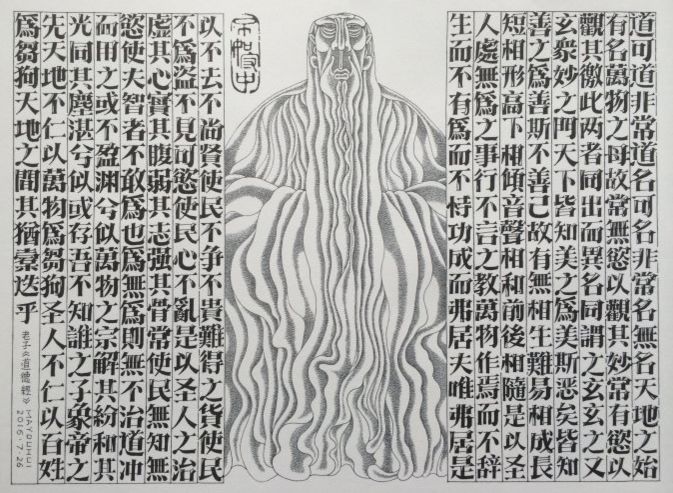 道可道非常道名可名非常名無名天地之始
有名萬物之母故常無慾以觀其妙常有慾以
觀其徼此两者同出而異名同謂之玄玄之又
玄衆妙之門天下皆知美之爲美斯恶矣皆知
善之爲善斯不善已故有無相生難易相成長
短相形高下相傾音聲相和前後相隨是以圣
人處無爲之事行不言之教萬物作焉而不辞
生而不有爲而不恃功成而弗居夫唯弗居是
以不去不尚賢使民不争不貴難得之货使民
不爲盗不見可慾使民心不亂是以圣人之治
虚其心實其腹弱其志强其骨常使民無知無
慾使夫智者不敢爲也爲無爲則無不治道冲
而用之或不盈渊兮似萬物之宗解其紛和其
光同其塵湛兮似或存吾不知誰之子象帝之
先天地不仁以萬物爲芻狗圣人不仁以百姓
爲芻狗天地之間其猶橐迭乎
老子《道德經》
MAYOUHUI
2016·7·26